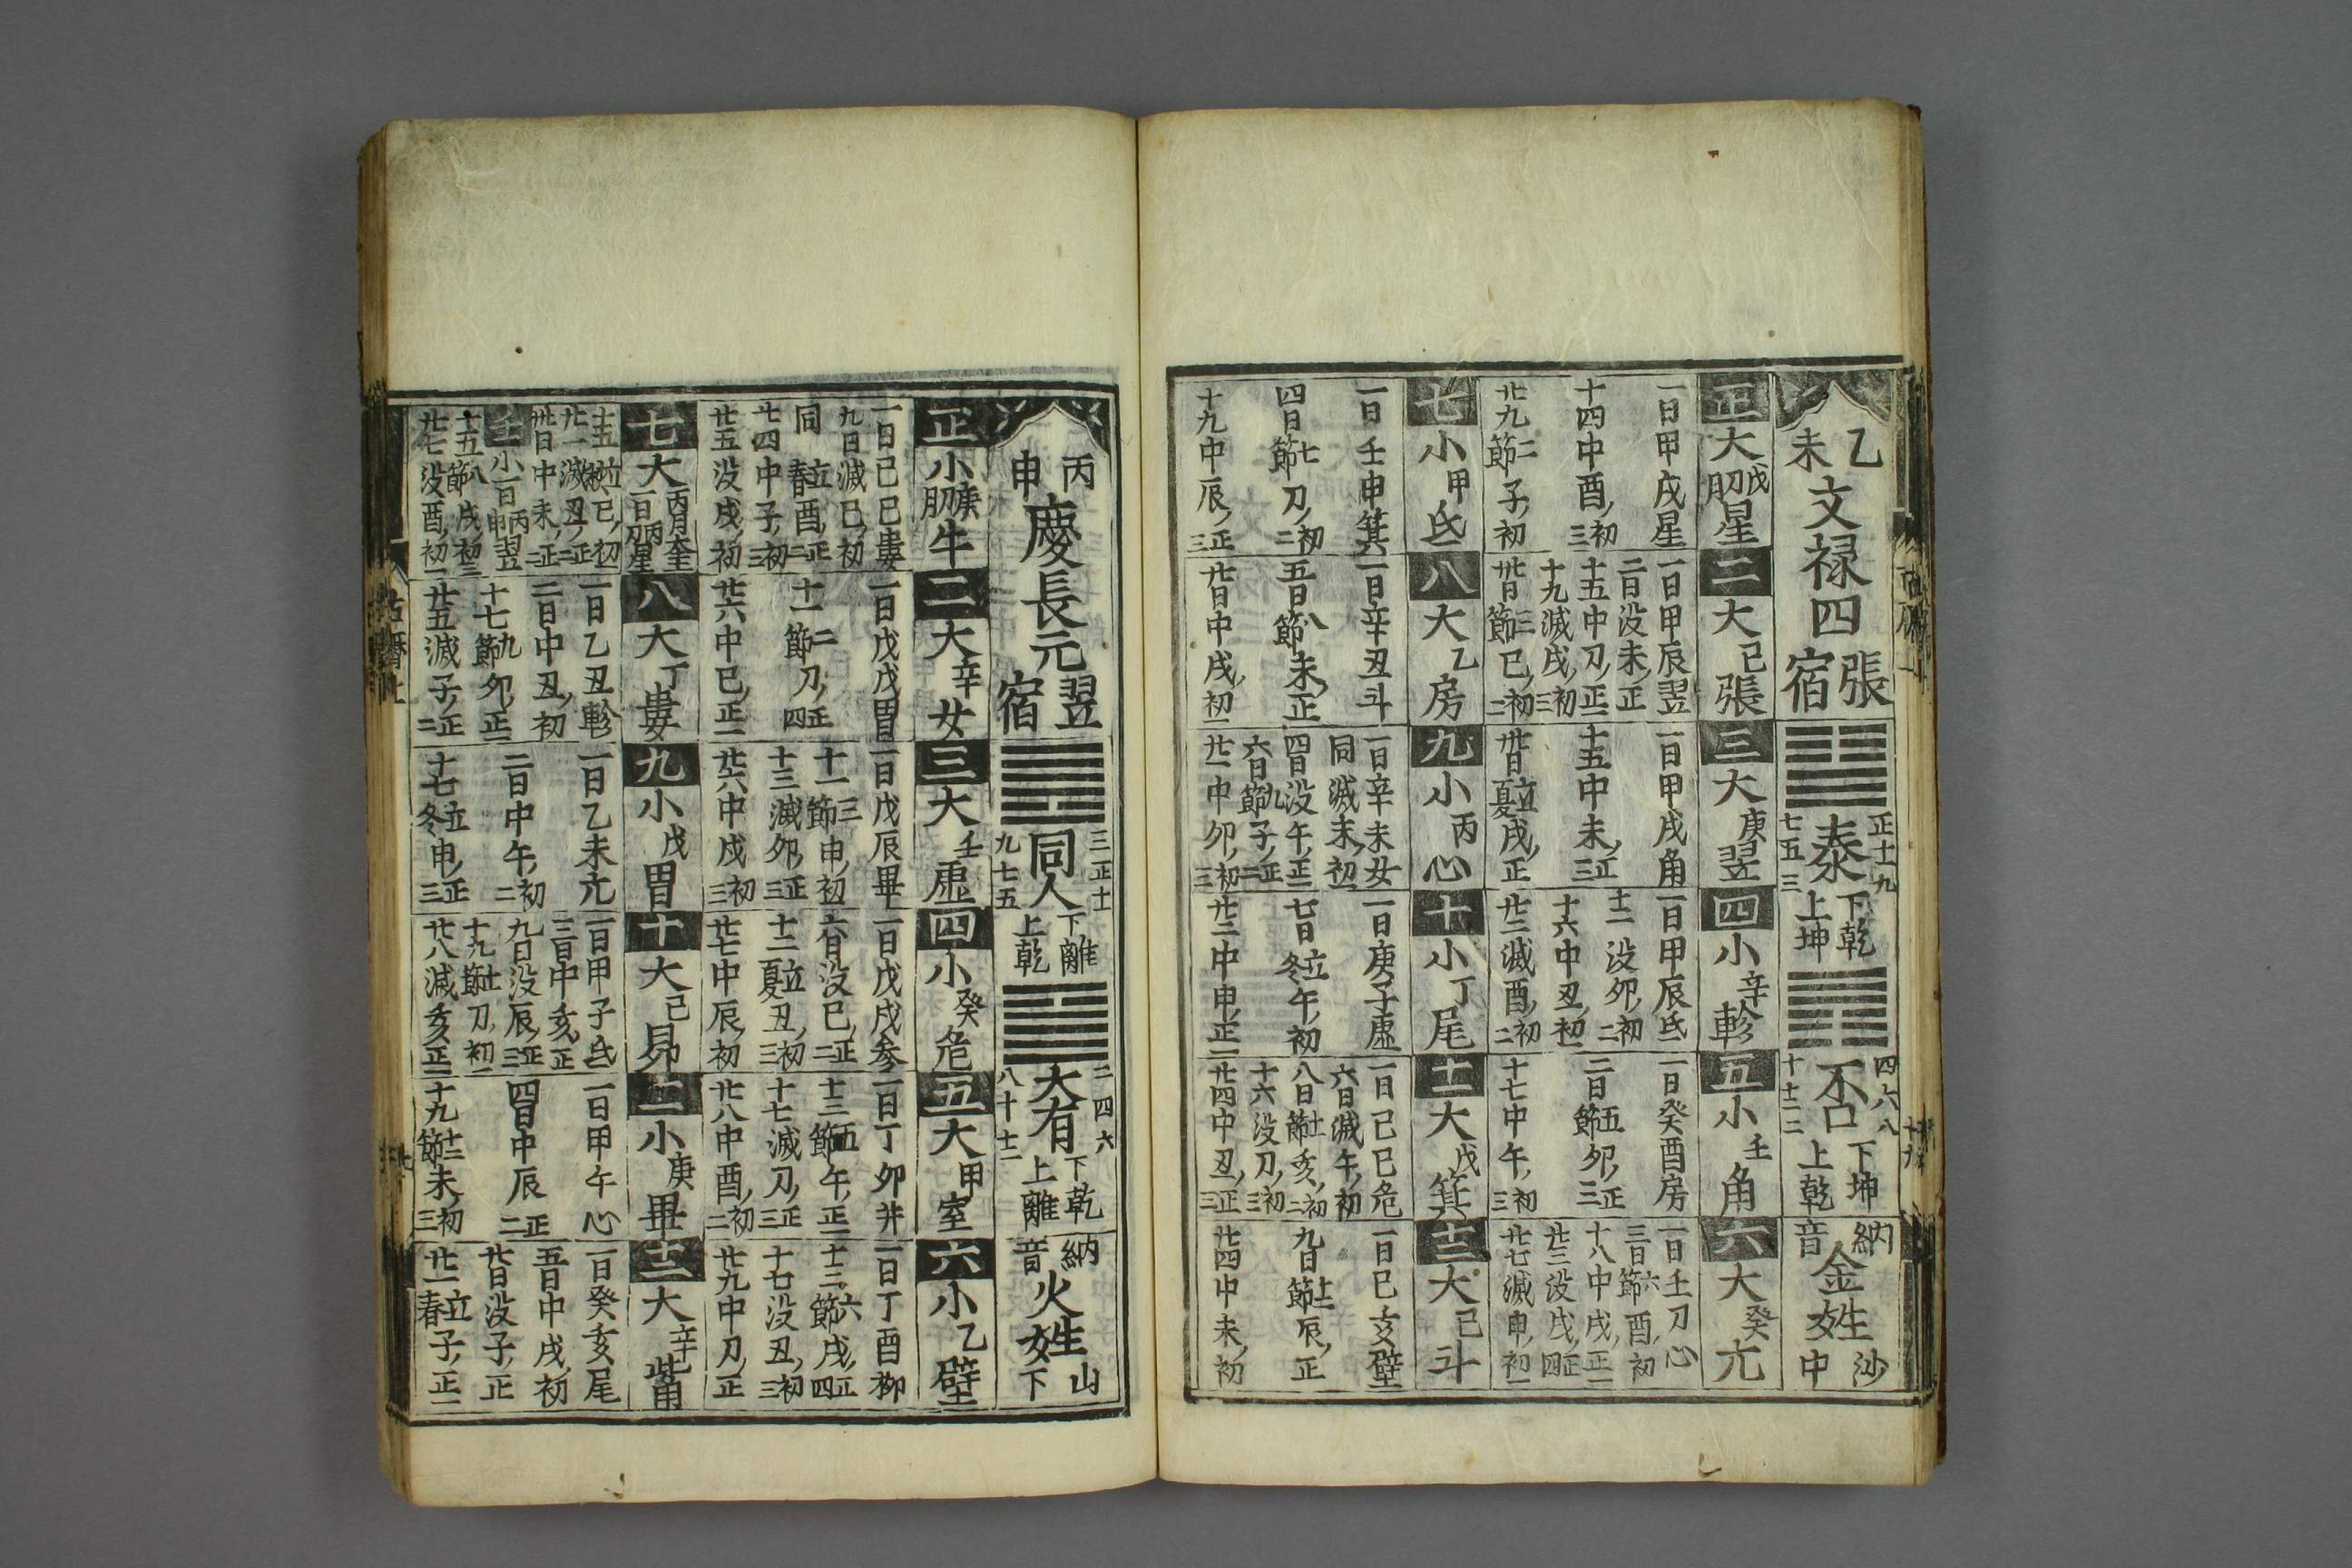 乙未
文禄四
張宿
泰
正十一九
七五三
下乾
上坤
否
四六八
十十二二
下坤
上乾
納音
金姓
沙中
正大
戊
星
一日甲戌星
十四中酉初三
廿九節二子初
二大己張
一日甲辰翌
二日没未正
十五中刀正一
十九滅戌初三
卅日節三巳初二
三大庚翌
一日甲戌角
十五中未正三
卅日立夏戌正
四小辛軫
一日甲辰氐
十二没夘初二
十六中丑初一
廿三滅酉初二
五小壬角
一日癸酉房
二日節五夘正三
十七中午初三
六大癸亢
一日壬刀心
三日節六酉初
十八中戌正一
廿三没戌正四
廿七滅申初一
七小甲氐
一日壬申箕
四日節七刀初二
十九中辰正三
八大乙房
一日辛丑斗
五日節八未正
廿日中戌初一
九小丙心
一日辛未女
同滅未初
四日没午正一
六日節九子正二
廿一中夘初三
十小丁尾
一日庚子虚
七日立冬午初
廿二中申正一
十一大戊箕
一日己巳危
六日滅午初
八日節十一亥初二
十六没刀初三
廿四中丑正三
十二大己斗
一日己亥壁
九日節十二辰正
廿四中未初
丙申
慶長元
翌宿
同人
三正十一
九七五
下離
上乾
大有
二四六
八十十二
下乾
上離
納音
火姓
山下
正小
庚
牛
一日己巳婁
九日滅巳初
同立春酉正二
廿四中子初三
廿五没戌初
二大辛女
一日戊戌胃
十一節二刀正四
廿六中巳正一
三大壬虚
一日戊辰畢
十一節三申初
十三滅夘正三
廿六中戌初三
四小癸危
一日戊戌参
六日没巳正二
十二立夏丑初三
廿七中辰初
五大甲室
一日丁夘井
十三節五午正一
十七滅刀正三
廿八中酉初二
六小乙壁
一日丁酉柳
十三節六戌正四
十七没丑初三
廿九中刀正
七大丙奎
一日丙刀星
十五立秋巳初
廿一滅丑正二
卅日中未正二
壬小
一日丙申翌
十五節八戌初三
廿七没酉初一
八大丁婁
一日乙丑軫
二日中丑初
十七節九夘正一
廿五滅子正二
九小戊胃
一日乙未亢
二日中午初二
十七立冬申正三
十大己昴
一日甲子氐
三日中亥正
九日没辰正三
十九節十一刀初一
廿八滅亥正二
十一小庚畢
一日甲午心
四日中辰正二
十九節十二未初三
十二大辛觜
一日癸亥尾
五日中戌初
廿日没子正
廿一立春子正一